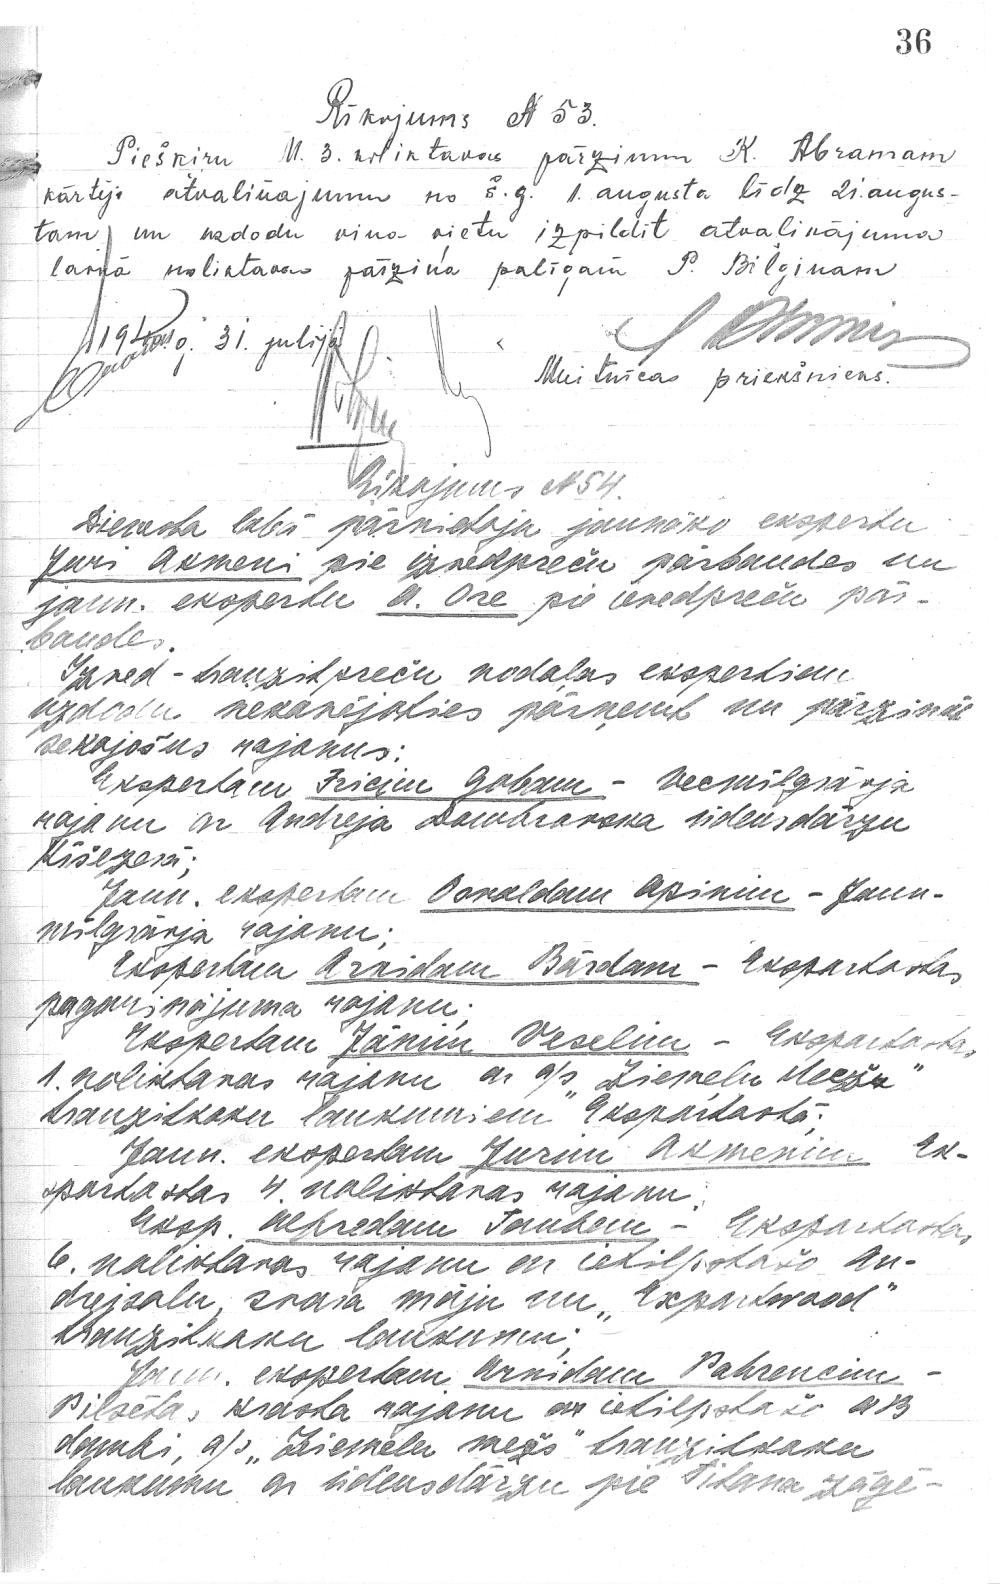 36
Rīkojums № 53.
Piešķiru M. 3. noliktavas pārzinim K. Abramam
kārtējo atvaļinājumu no š.g. 1. augusta līdz 21. augus-
tam un uzdodu viņa vietu izpildīt atvaļinājuma
laikā noliktavas pārziņa palīgam P. Bilginam
1940.g. 31. jūlijā
Muitnīcas priekšnieks.
Rīkojums № 54.
Dienesta labā pārvietoju jaunāko ekspertu
Juri Akmeni pie izvedpreču pārbaudes un
jaun. ekspertu A. Ore pie ievedpreču pār-
baudes.
Izved-tranzitpreču nodaļas ekspertiem
uzdodu nekavējoties pārņemt un pārzināt
sekojošus rajonus:
Ekspertam Fricim Gobam - Vecmīlgrāvja
rajonu ar Andreja Dombrovska ūdensdārzu
Ķīšezerā;
Jaun. ekspertam Osvaldam Apinim - Jaun-
mīlgrāvja rajonu;
Ekspertam Arvidam Bārdam - Eksportostas
pagarinājuma rajonu;
Ekspertam Jānim Veselim - Eksportostas
1. noliktavas rajonu ar a/s "Ziemeļu Mežu"
tranzitkoku laukumiem Eksportostā;
Jaun. ekspertam Jurim Akmenim Ek-
sportostas 4. noliktavas rajonu;
Eksp. Alfredam Taubem - Eksportostas
6. noliktavas rajonu ar ietilpstošo An-
drejsalu, svaru māju un "Exportwood"
tranzitkoku laukumu;
Jaun. ekspertam Arvidam Pahrencim -
Pilsētas krasta rajonu ar ietilpstošo AB
dambi, a/s "Ziemeļu mežs" tranzitkoku
laukumu ar ūdensdārzu pie Titana zāģē-